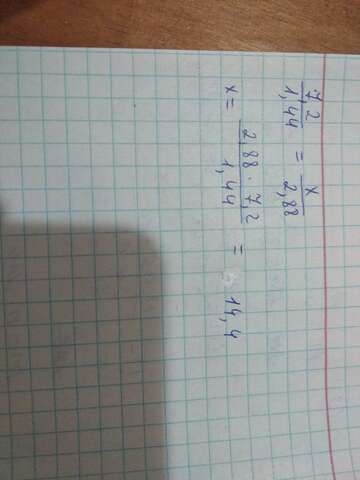 7,2/1,44 = x/2,88
x = 2,88 · 7,2/1,44 = 14,4